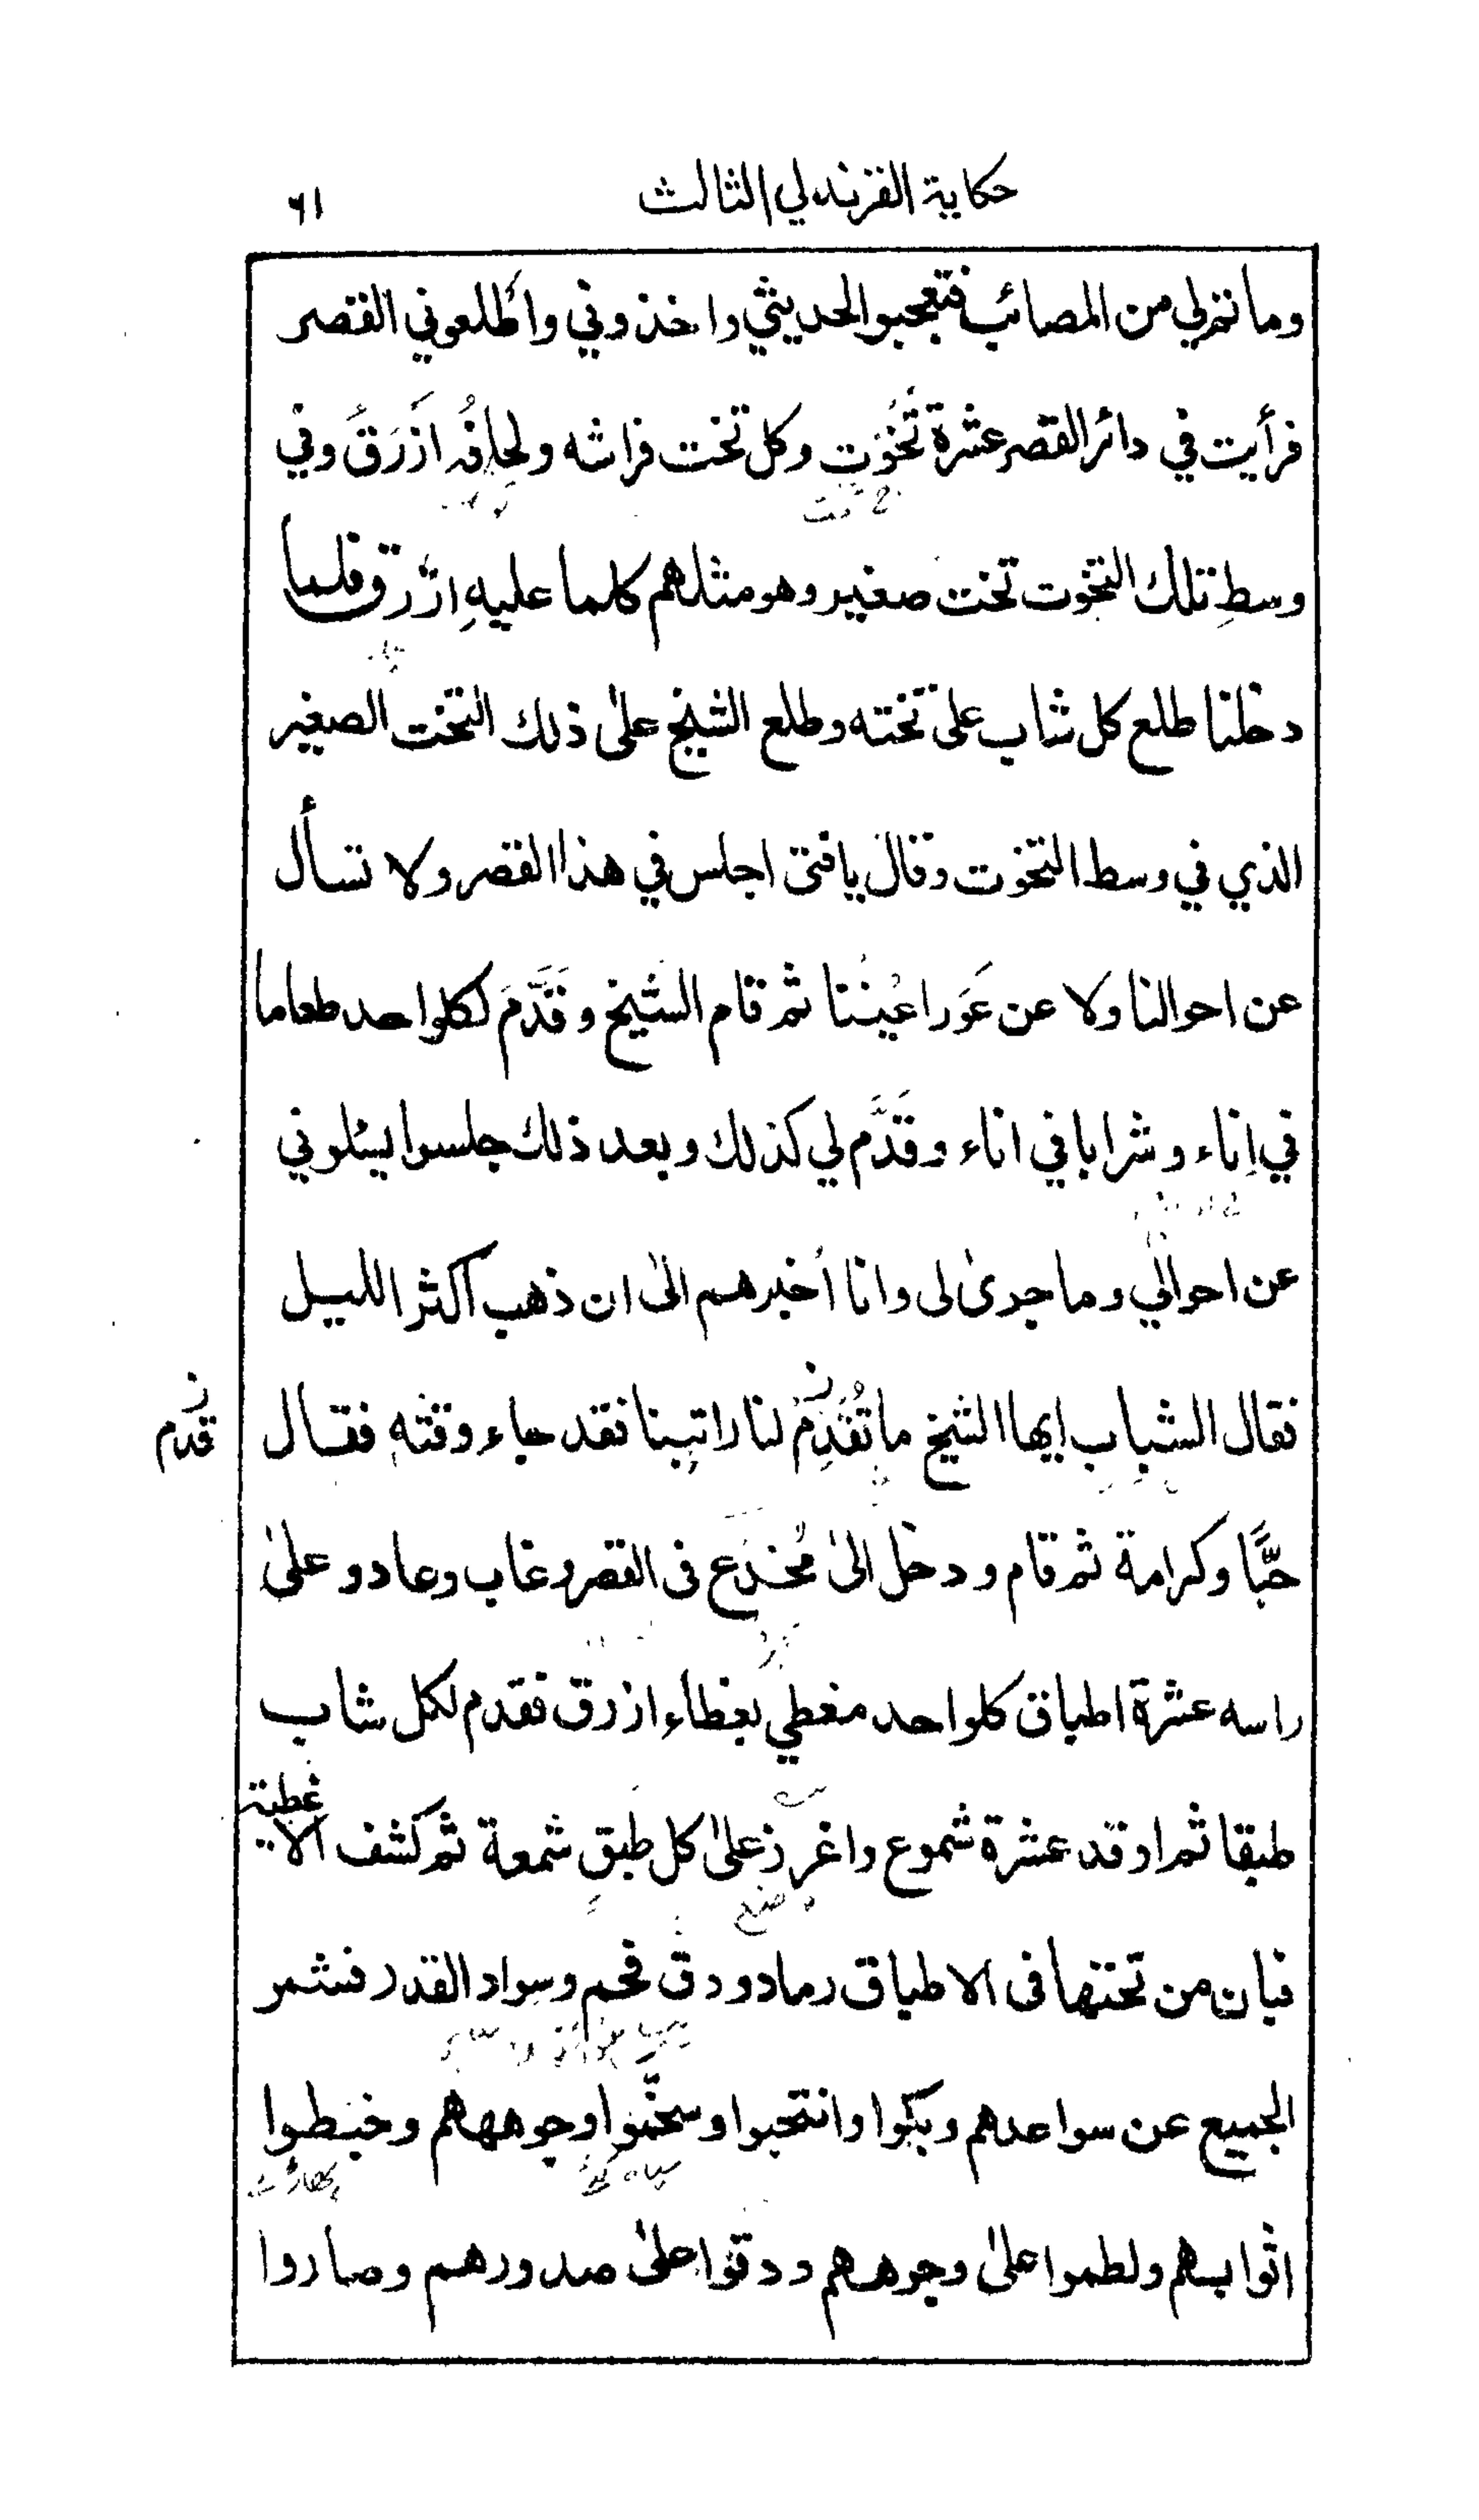 حكاية القرندلي الثالث ٦١
وما تم لي من المصائب فتعجبوا لحديثي واخذوني وأطلعوني القصر
فرأيت في دائر القصر عشرة تُخُوت وكل تخت فراشه ولحافُه ازرَقُ وفي
وسطِ تلك التخوت تخت صغير وهو مثلهم كلما عليهِ ازرق فلما
دخلنا طلع كل شاب على تخته وطلع الشيخ علىٰ ذلك التخت الصغير
الذي في وسط التخوت وقال يا فتى اجلس في هذا القصر ولا تسأل
عن احوالنا ولا عن عَوَر اعيُننا ثم قام الشَيخ وقَدَّمَ لكلواحد طعاما
في اِناء وشرابا في اناء وقَدَّم لي كذلك وبعد ذلك جلسوا يسئلوني
عن احوالي وما جرىٰ لى وانا اُخبرهم الىٰ ان ذهب اكثر الليل
فقال الشباب ايها الشيخ ما تُقَدِّمُ لنا راتِبنا فقد جاء وقته فقال
قدّم
حُبًّا وكرامة ثم قام ودخل الىٰ مُخدَع فى القصر وغاب وعاد وعلىٰ
راسه عشرة اطباق كلواحد مغطي بغطاء ازرق فقدم لكل شاب
طبقا ثم اوقد عشرة شموع واغرز علىٰ كل طبق شمعة ثم كشف الاغطية
فبان من تحتها فى الاطباق رماد ودق فحم وسواد القدر فشمر
الجميع عن سواعدهم وبكوا وانتحبوا وسخَّموا وجوههم وخبطوا
اثوابهم ولطموا علىٰ وجوههم ودقوا علىٰ صدورهم وصاروا